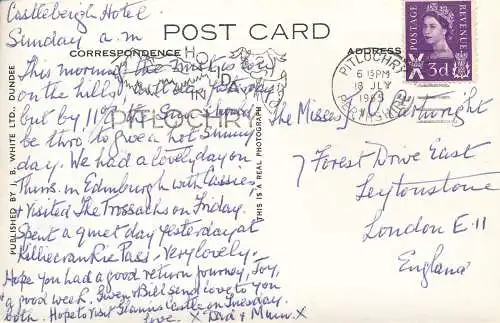 Castlebergh Hotel.
Sunday a.m
POST CARD
CORRESPONDENCE
ADDRESS
This morning the mist is low
on the hills
but by 11 o'c the Sun should
be thro' to give a hot Sunny
day. We had a lovely day on
Thurs. in Edinburgh with Cassies,
& visited The Trossachs on Friday.
Spent a quiet day yesterday at
Killiecrankie Pass. Very lovely.
Hope you had a good return journey, Joy,
& a good week. Gwen & Bill send love to you
both. Hope to visit Glamis Castle on Tuesday.
love. X Dad & Mum. X
HO
IDA
IN
PITLOCHRY
PITLOCHRY
6 15PM
18 JLY
1965
PERTHSHIRE
POSTAGE
REVENUE
3d
The Misses J. Cartwright
7 Forest Drive East
Leytonstone
London E.11
England
PUBLISHED BY J. B. WHITE LTD., DUNDEE
THIS IS A REAL PHOTOGRAPH